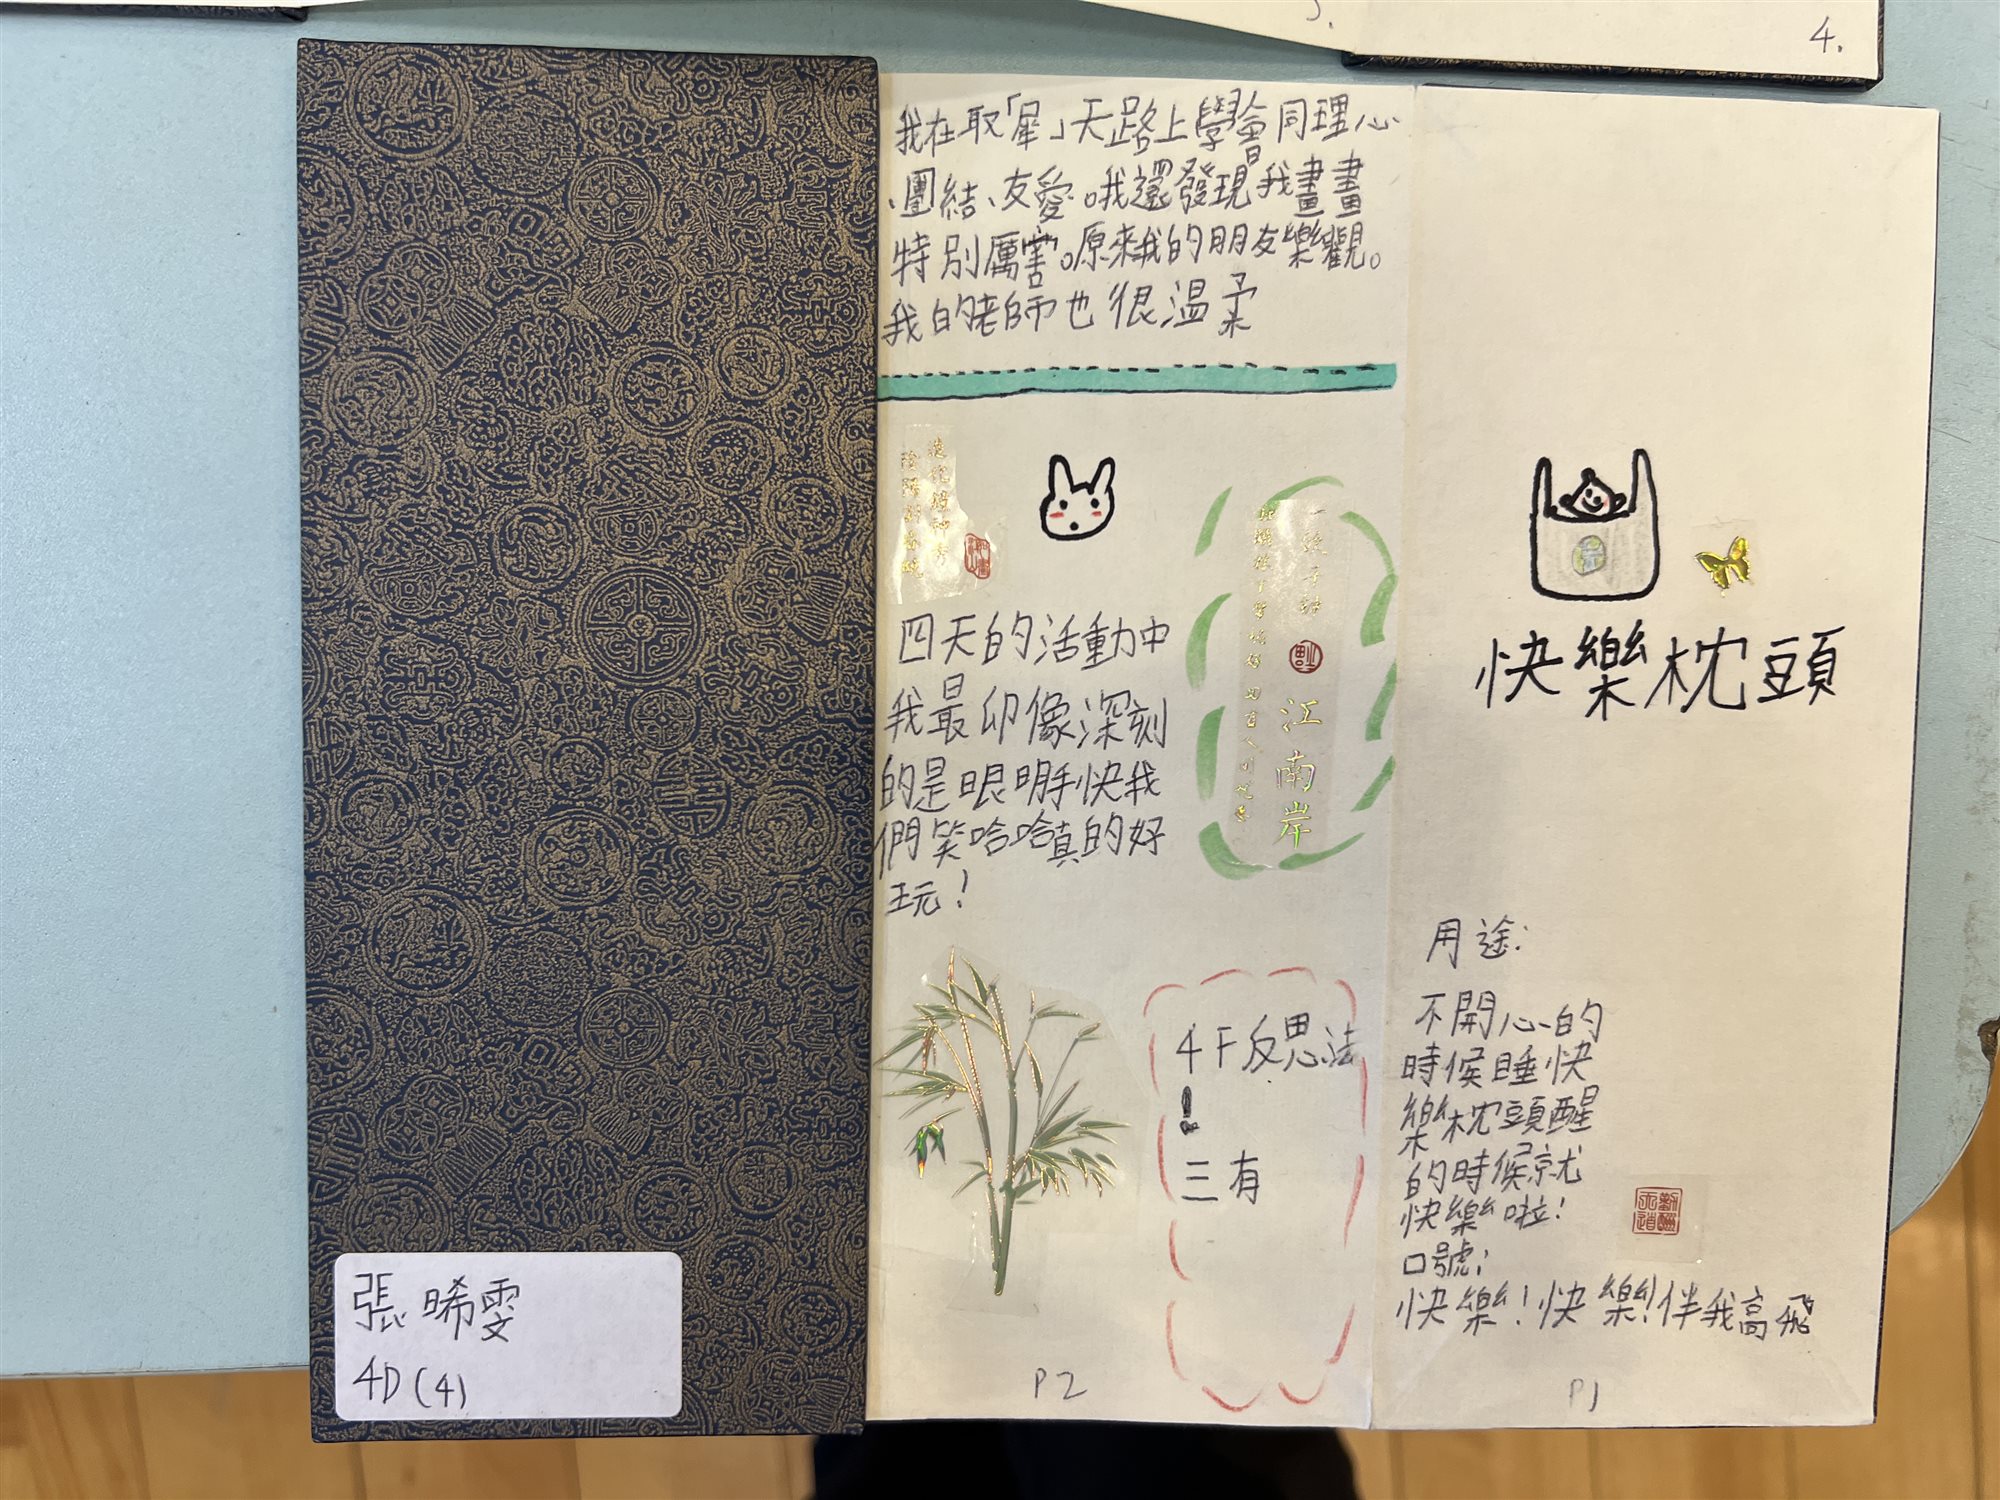 3.
4.
我在取「犀」天路上學會同理心
、團結、友愛。我還發現我畫畫
特別厲害。原來我的朋友樂觀。
我的老師也很温柔
造化鍾神秀
陰陽割昏曉
江南岸
四天的活動中
我最印像深刻
的是眼明手快我
們笑哈哈真的好
玩！
4F反思法
!
三有
P2
快樂枕頭
用途:
不開心的
時候睡快
樂枕頭醒
的時候就
快樂啦!
口號:
快樂!快樂!伴我高飛
P1
張晞雯
4D(4)